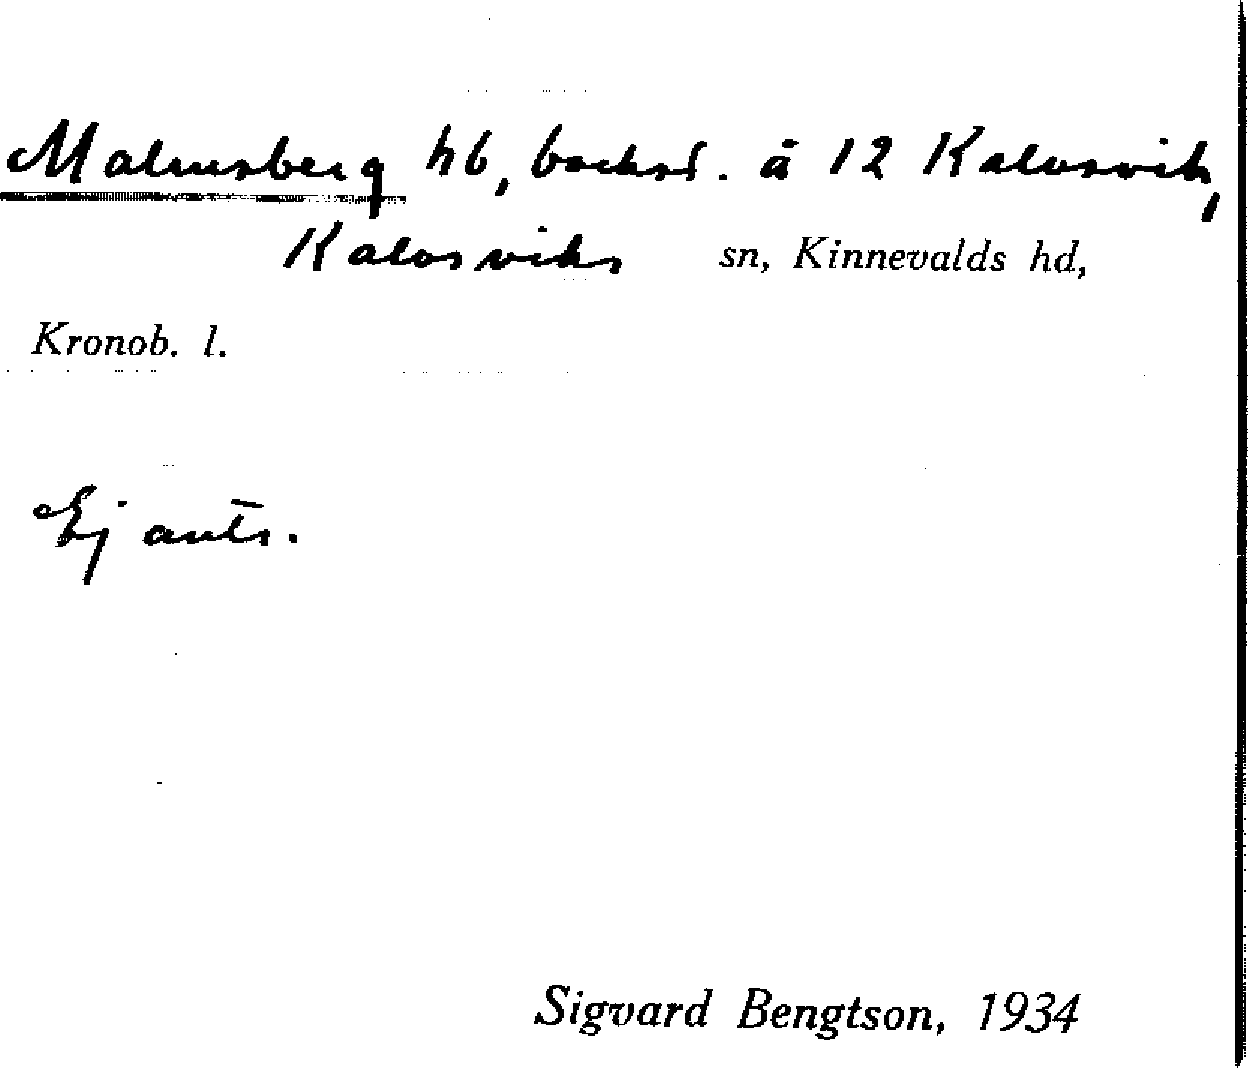 Malmsberg hb, backst. å 12 Kalvsvik,
Kalvsviks sn, Kinnevalds hd,
Kronob. l.
Ej antr.
Sigvard Bengtson, 1934